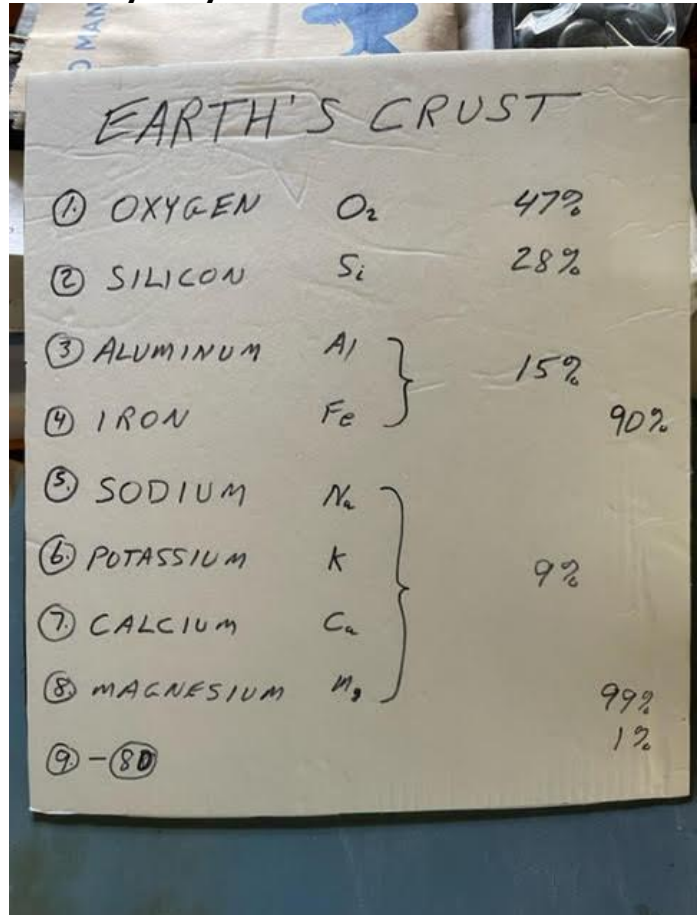 O MAN
EARTH'S CRUST
1. OXYGEN O2 47%
2 SILICON Si 28%
3 ALUMINUM Al
15%
4 IRON Fe
90%
5. SODIUM Na
6. POTASSIUM K
9%
7. CALCIUM Ca
8. MAGNESIUM Mg
99%
1%
9. - 80